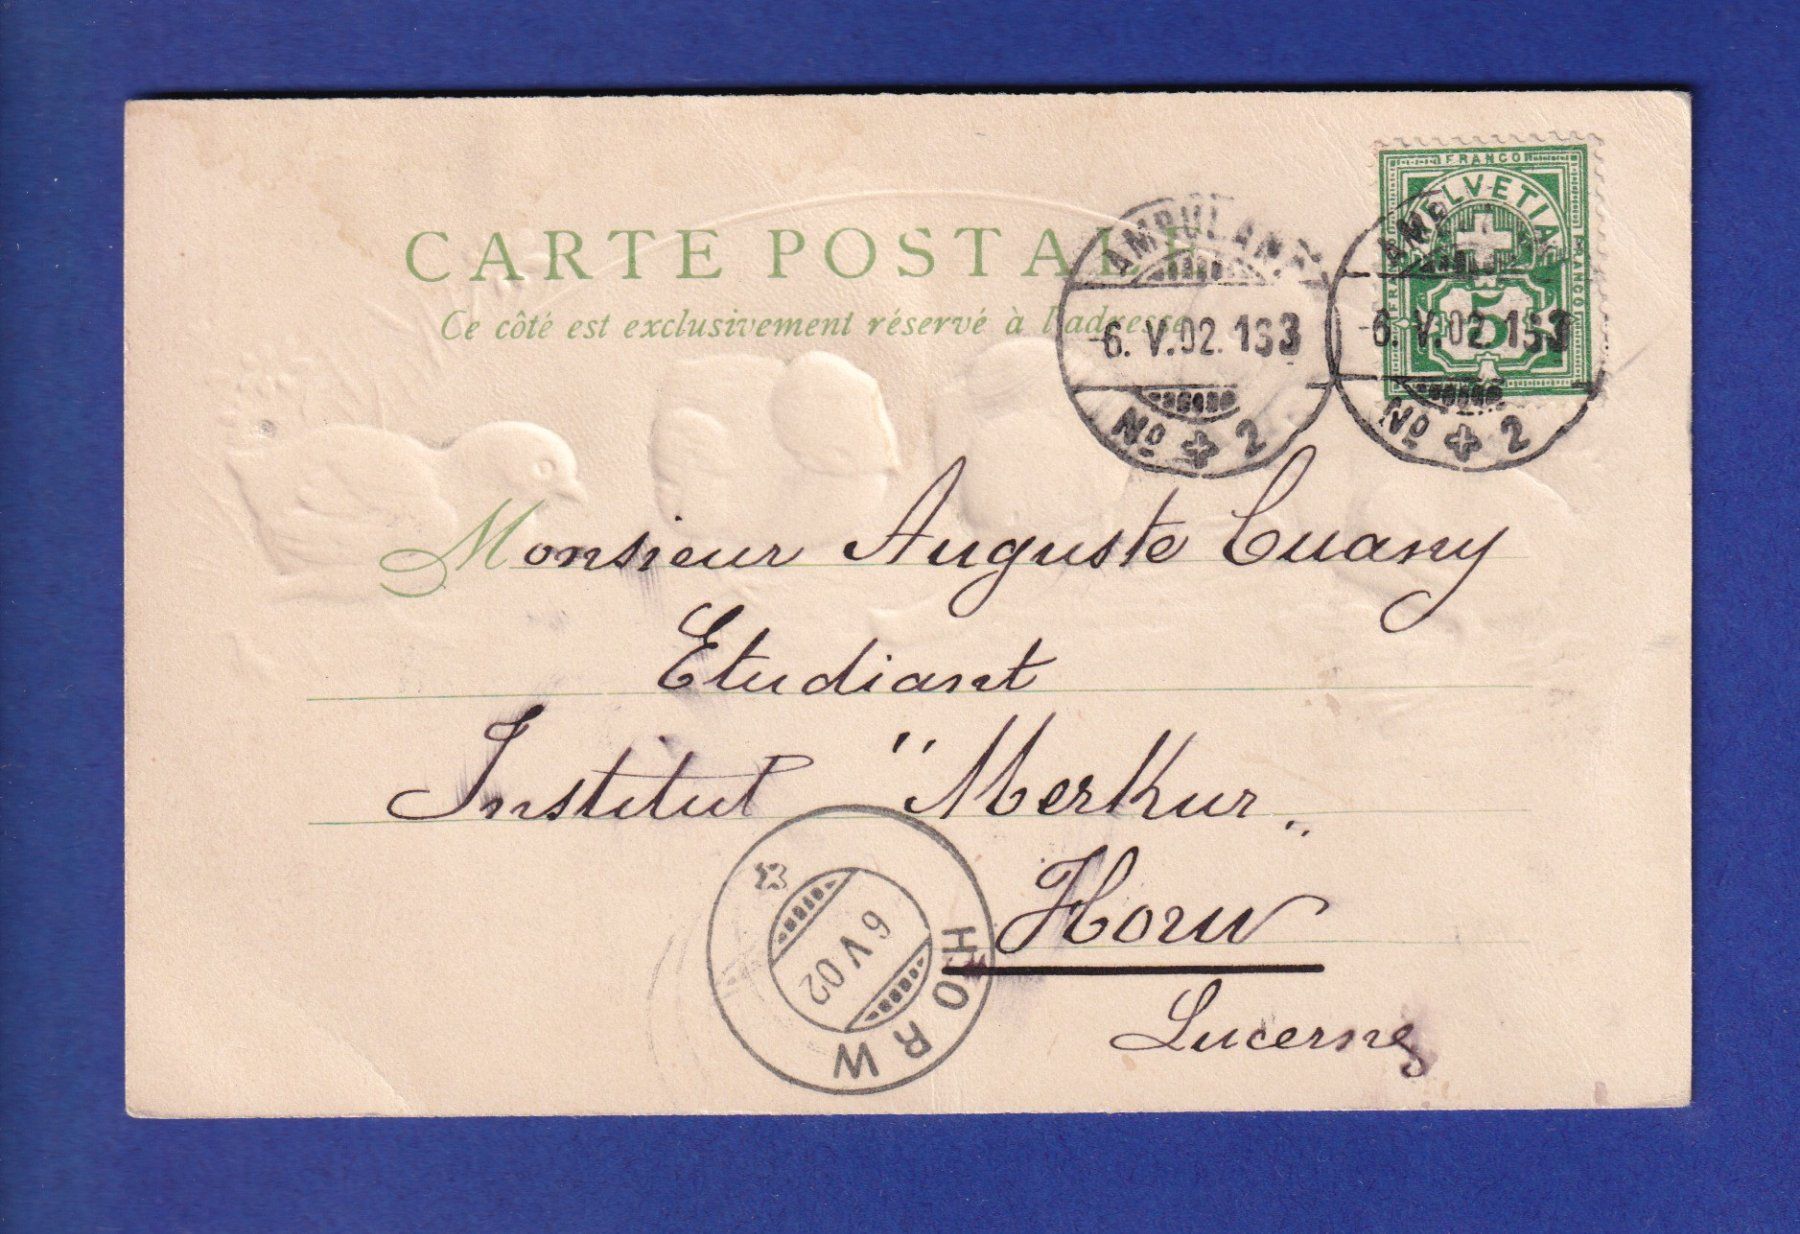 CARTE POSTALE
Ce côté est exclusivement réservé à l'adresse
FRANCO
HELVETIA
FRANCO
FRANCO
5
AMBULANT
-6. V. 02. 153
No 2
AMBULANT
-6. V. 02. 153
No 2
Monsieur Auguste Cuany
Etudiant
Institut "Merkur"
Horw
Lucerne
HORW
6 V 02